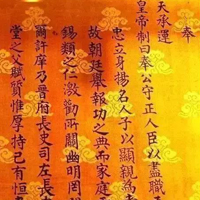 奉
天承運
皇帝制曰奉公守正人臣以盡職
忠立身揚名人子以顯親為
故朝廷舉報功之典而家庭
錫類之仁激勸所關幽明罔
爾許摩乃晉府長史司左長
堂之父賦質惟厚持己有恒